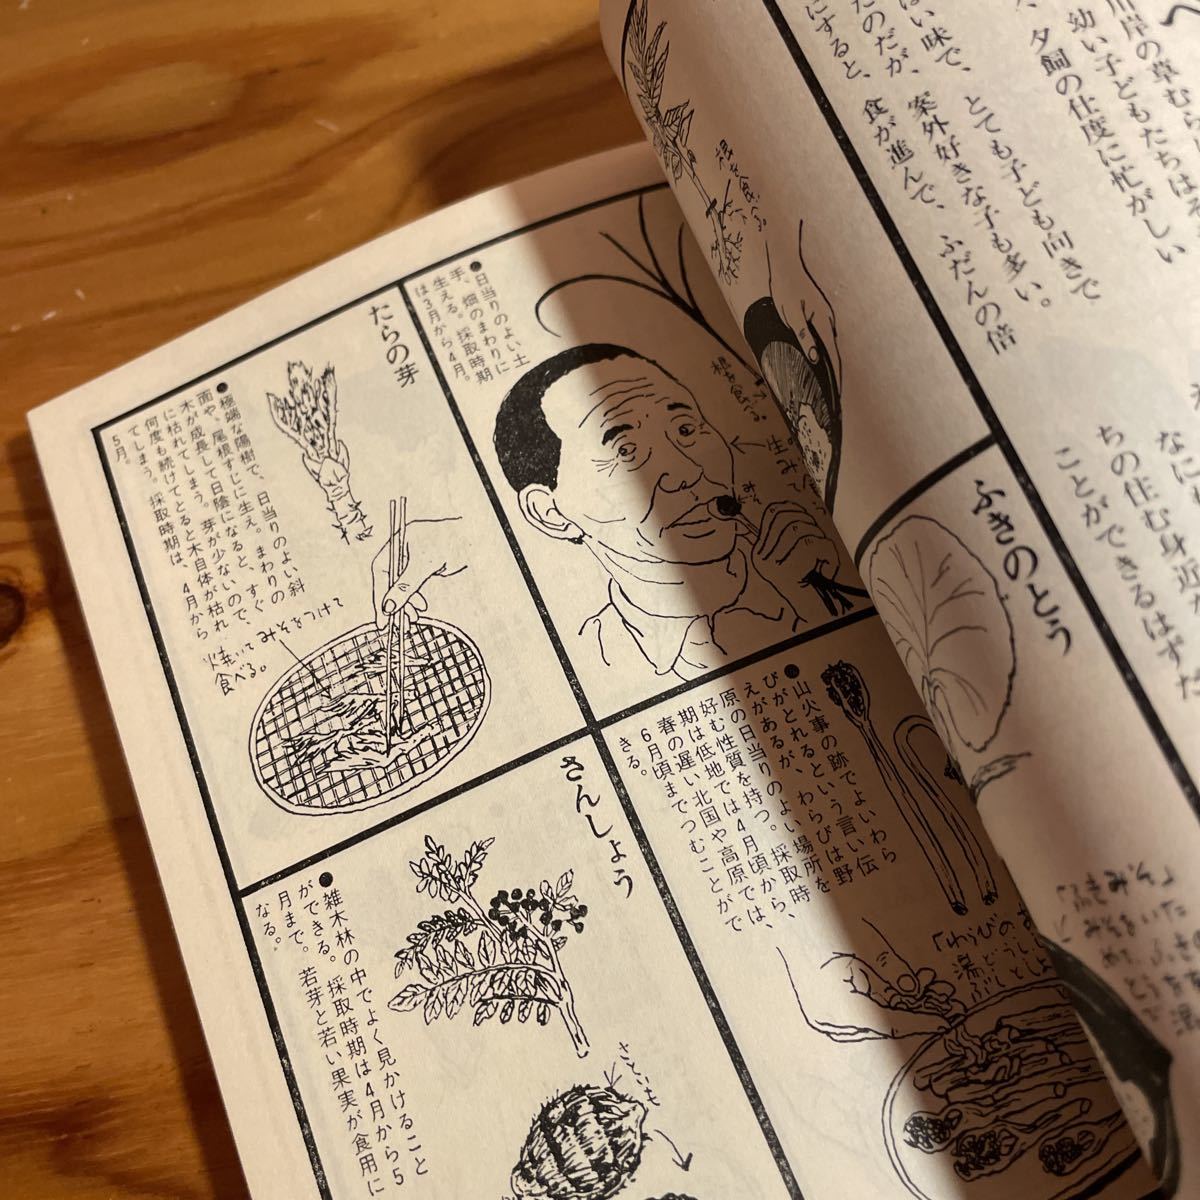 へ
川岸の草むら
幼い子どもたちは
、夕飼の仕度に忙がしい
とても子ども向きで
ぱい味で、
案外好きな子も多い。
たのだが、
食が進んで、ふだんの倍
にすると、
なに
ちの住む身近
ことができるはずだ
根を食べる。
ふきのとう
「ふきみそ」
●日当りのよい土
手、畑のまわりに
生える。採取時期
は3月から4月。
根を食べる。
生
みそ
たらの芽
●極端な陽樹で、日当りのよい斜
面や、尾根すじに生え。まわりの
木が成長して日陰になると、すぐ
に枯れてしまう。芽が少ないので、
何度も続けてとると木自体が枯れ
てしまう。採取時期は、4月から
5月。
焼いてみそをつけて
食べる。
●山火事の跡でよいわら
びがとれるという言い伝
えがあるが、わらびは野
原の日当りのよい場所を
好む性質を持つ。採取時
期は低地では4月頃から、
春の遅い北国や高原では、
6月頃までつむことがで
きる。
「わらびの
さんしょう
●雑木林の中でよく見かけること
ができる。採取時期は4月から5
月まで。若芽と若い果実が食用に
なる。
さといも